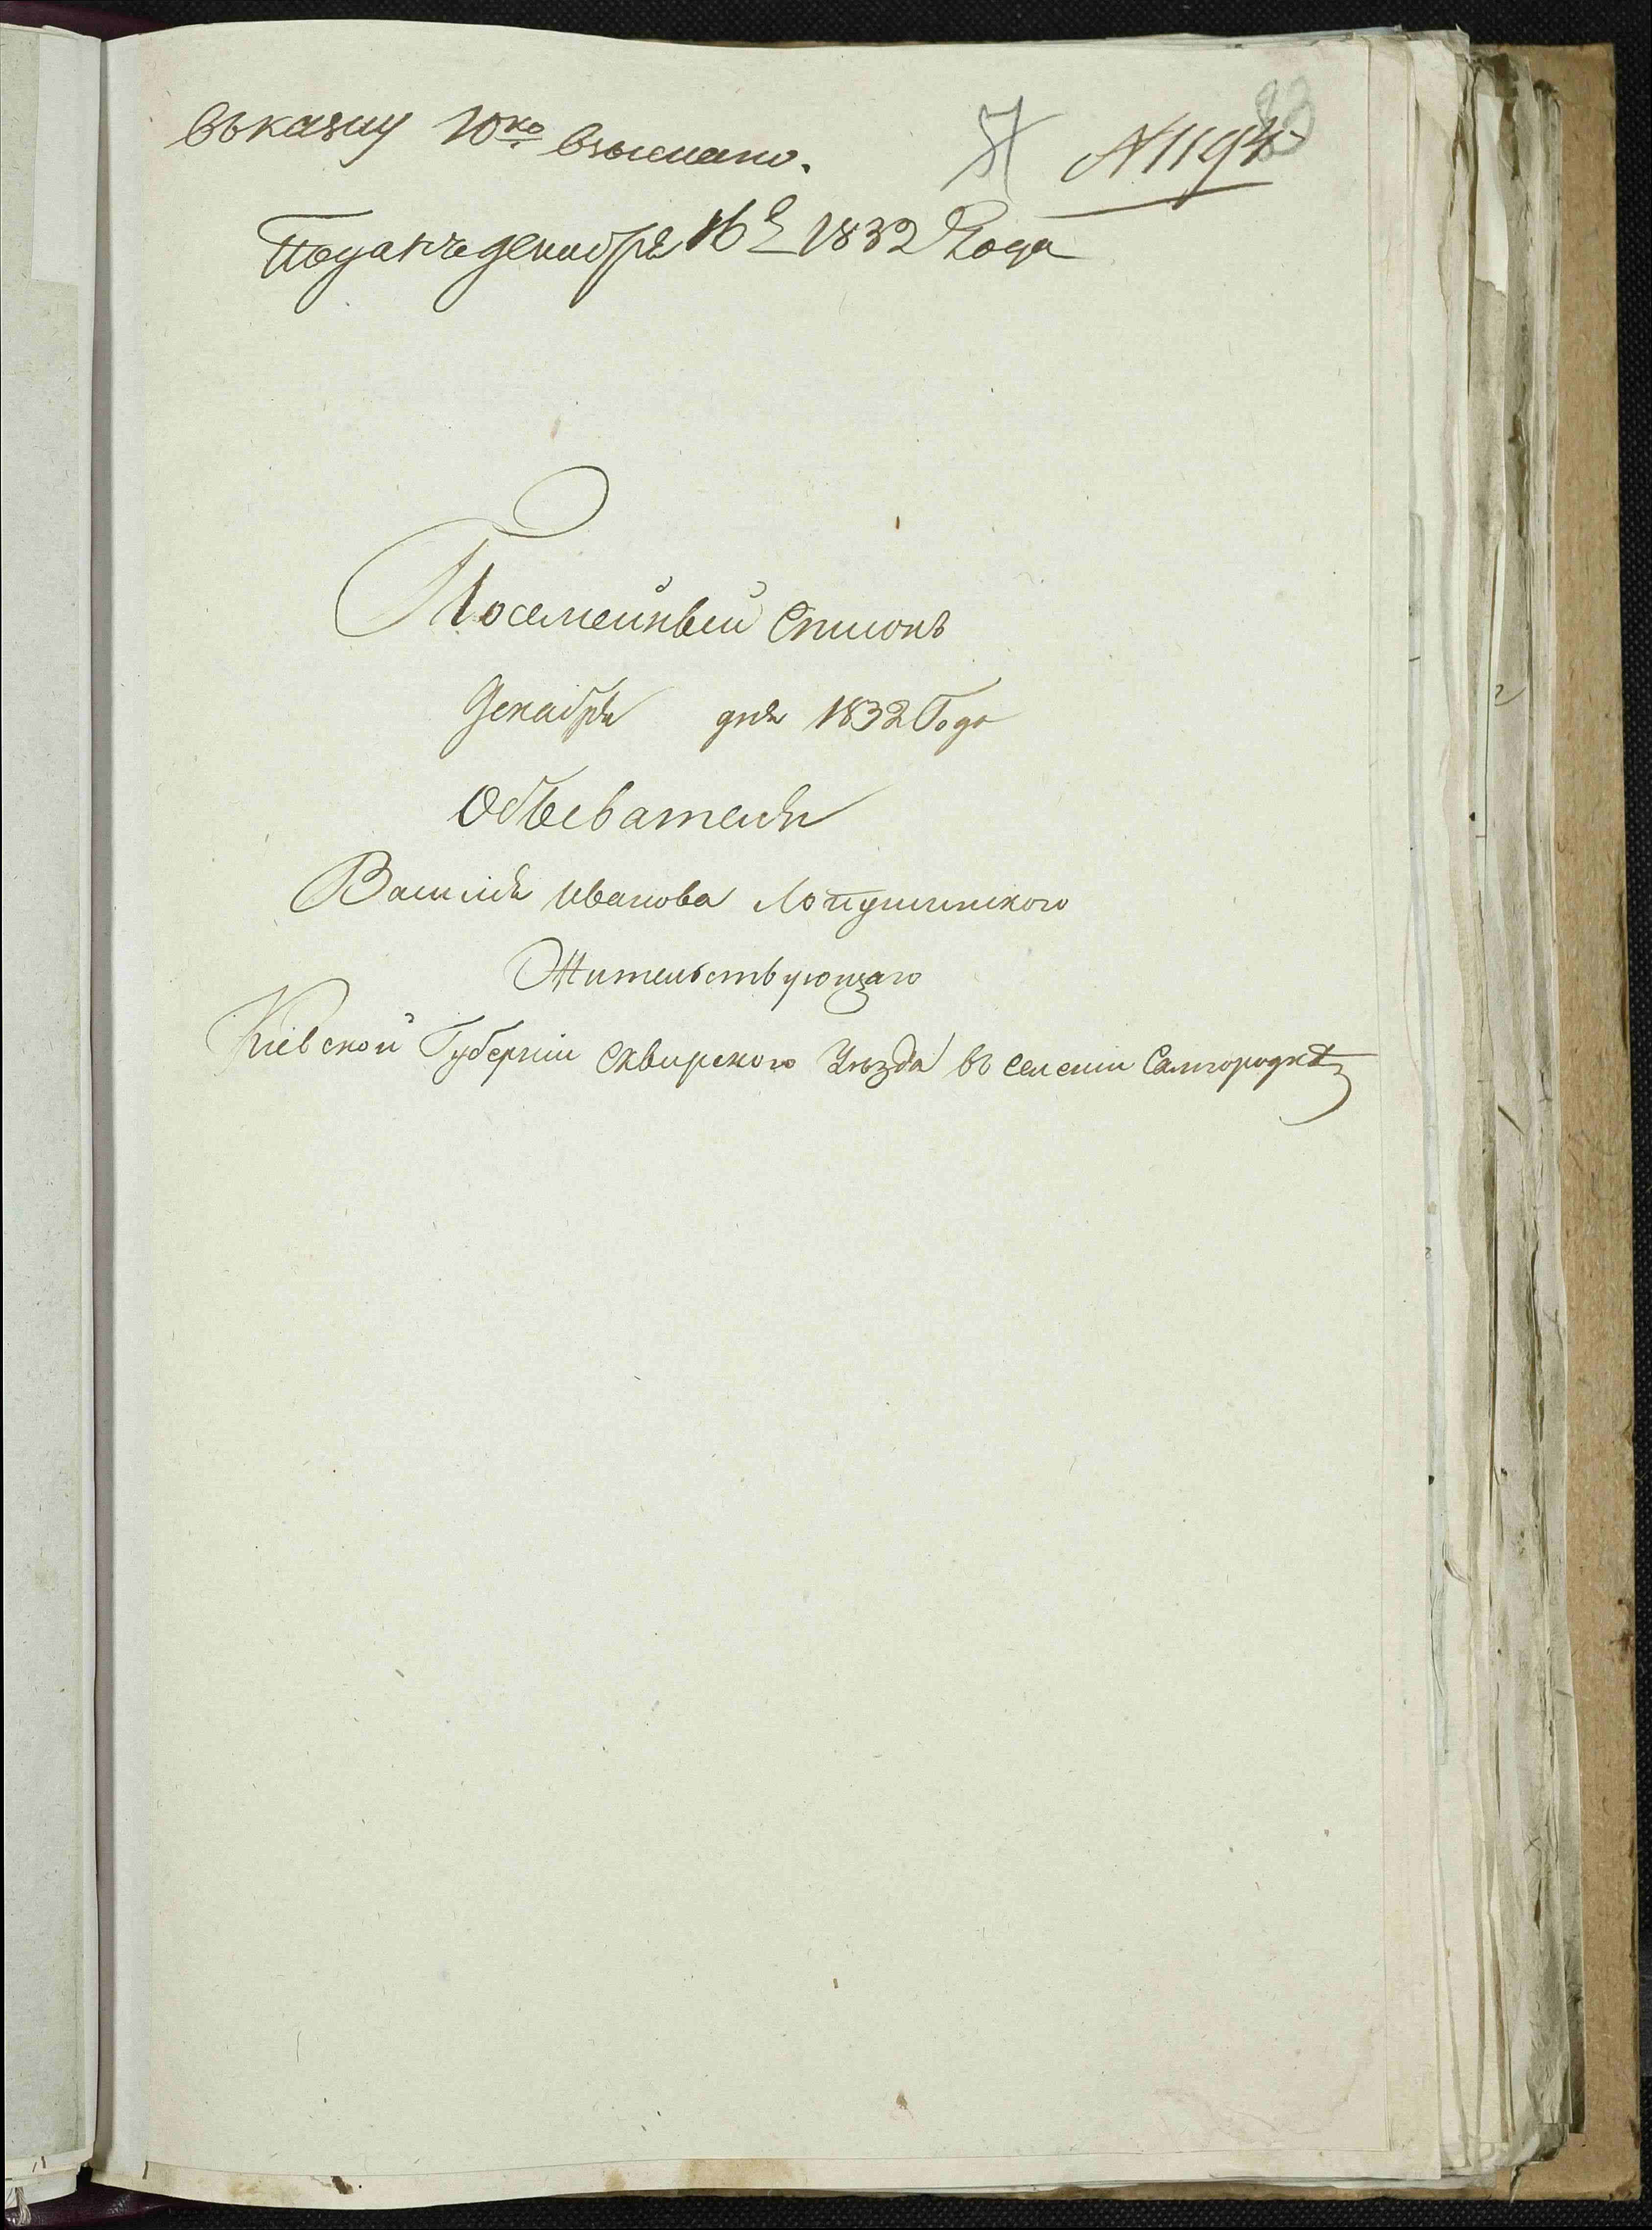 въ казну 10ко взыскано.
№ 1194
Поданъ декабря 16 1832 Года
Посемейный Списокъ
Декабря дня 1832 Года
Обывателя
Василія Иванова Лопушинского
Жительствующаго
Кіевской Губерніи Сквирского Уѣзда въ селеніи Самгородкѣ